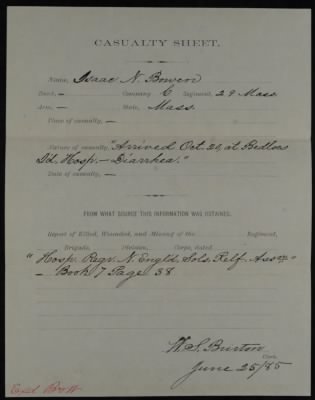 CASUALTY SHEET.
Name, Isaac N. Bowen
Rank, – Company C Regiment, 29 Mass
Arm, – State, Mass.
Place of casualty, –
Nature of casualty, "Arrived Oct. 20, at Bedloes
Id. Hosp. – Diarrhea."
Date of casualty, –
FROM WHAT SOURCE THIS INFORMATION WAS OBTAINED.
Report of Killed, Wounded, and Missing of the Regiment,
Brigade, Division, Corps, dated
"Hosp. Regr. N. Engld. Sols. Relf. Assn."
– Book 7 Page 38
W. S. Burton
Clerk.
June 25/85
Exd